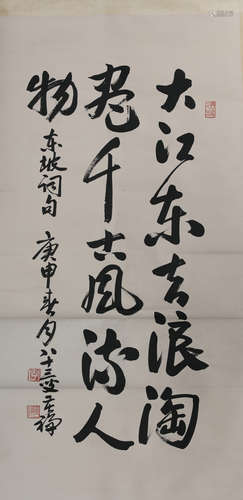 大江东去浪淘
尽千古风流人
物
东坡词句
庚申春月八十三叟